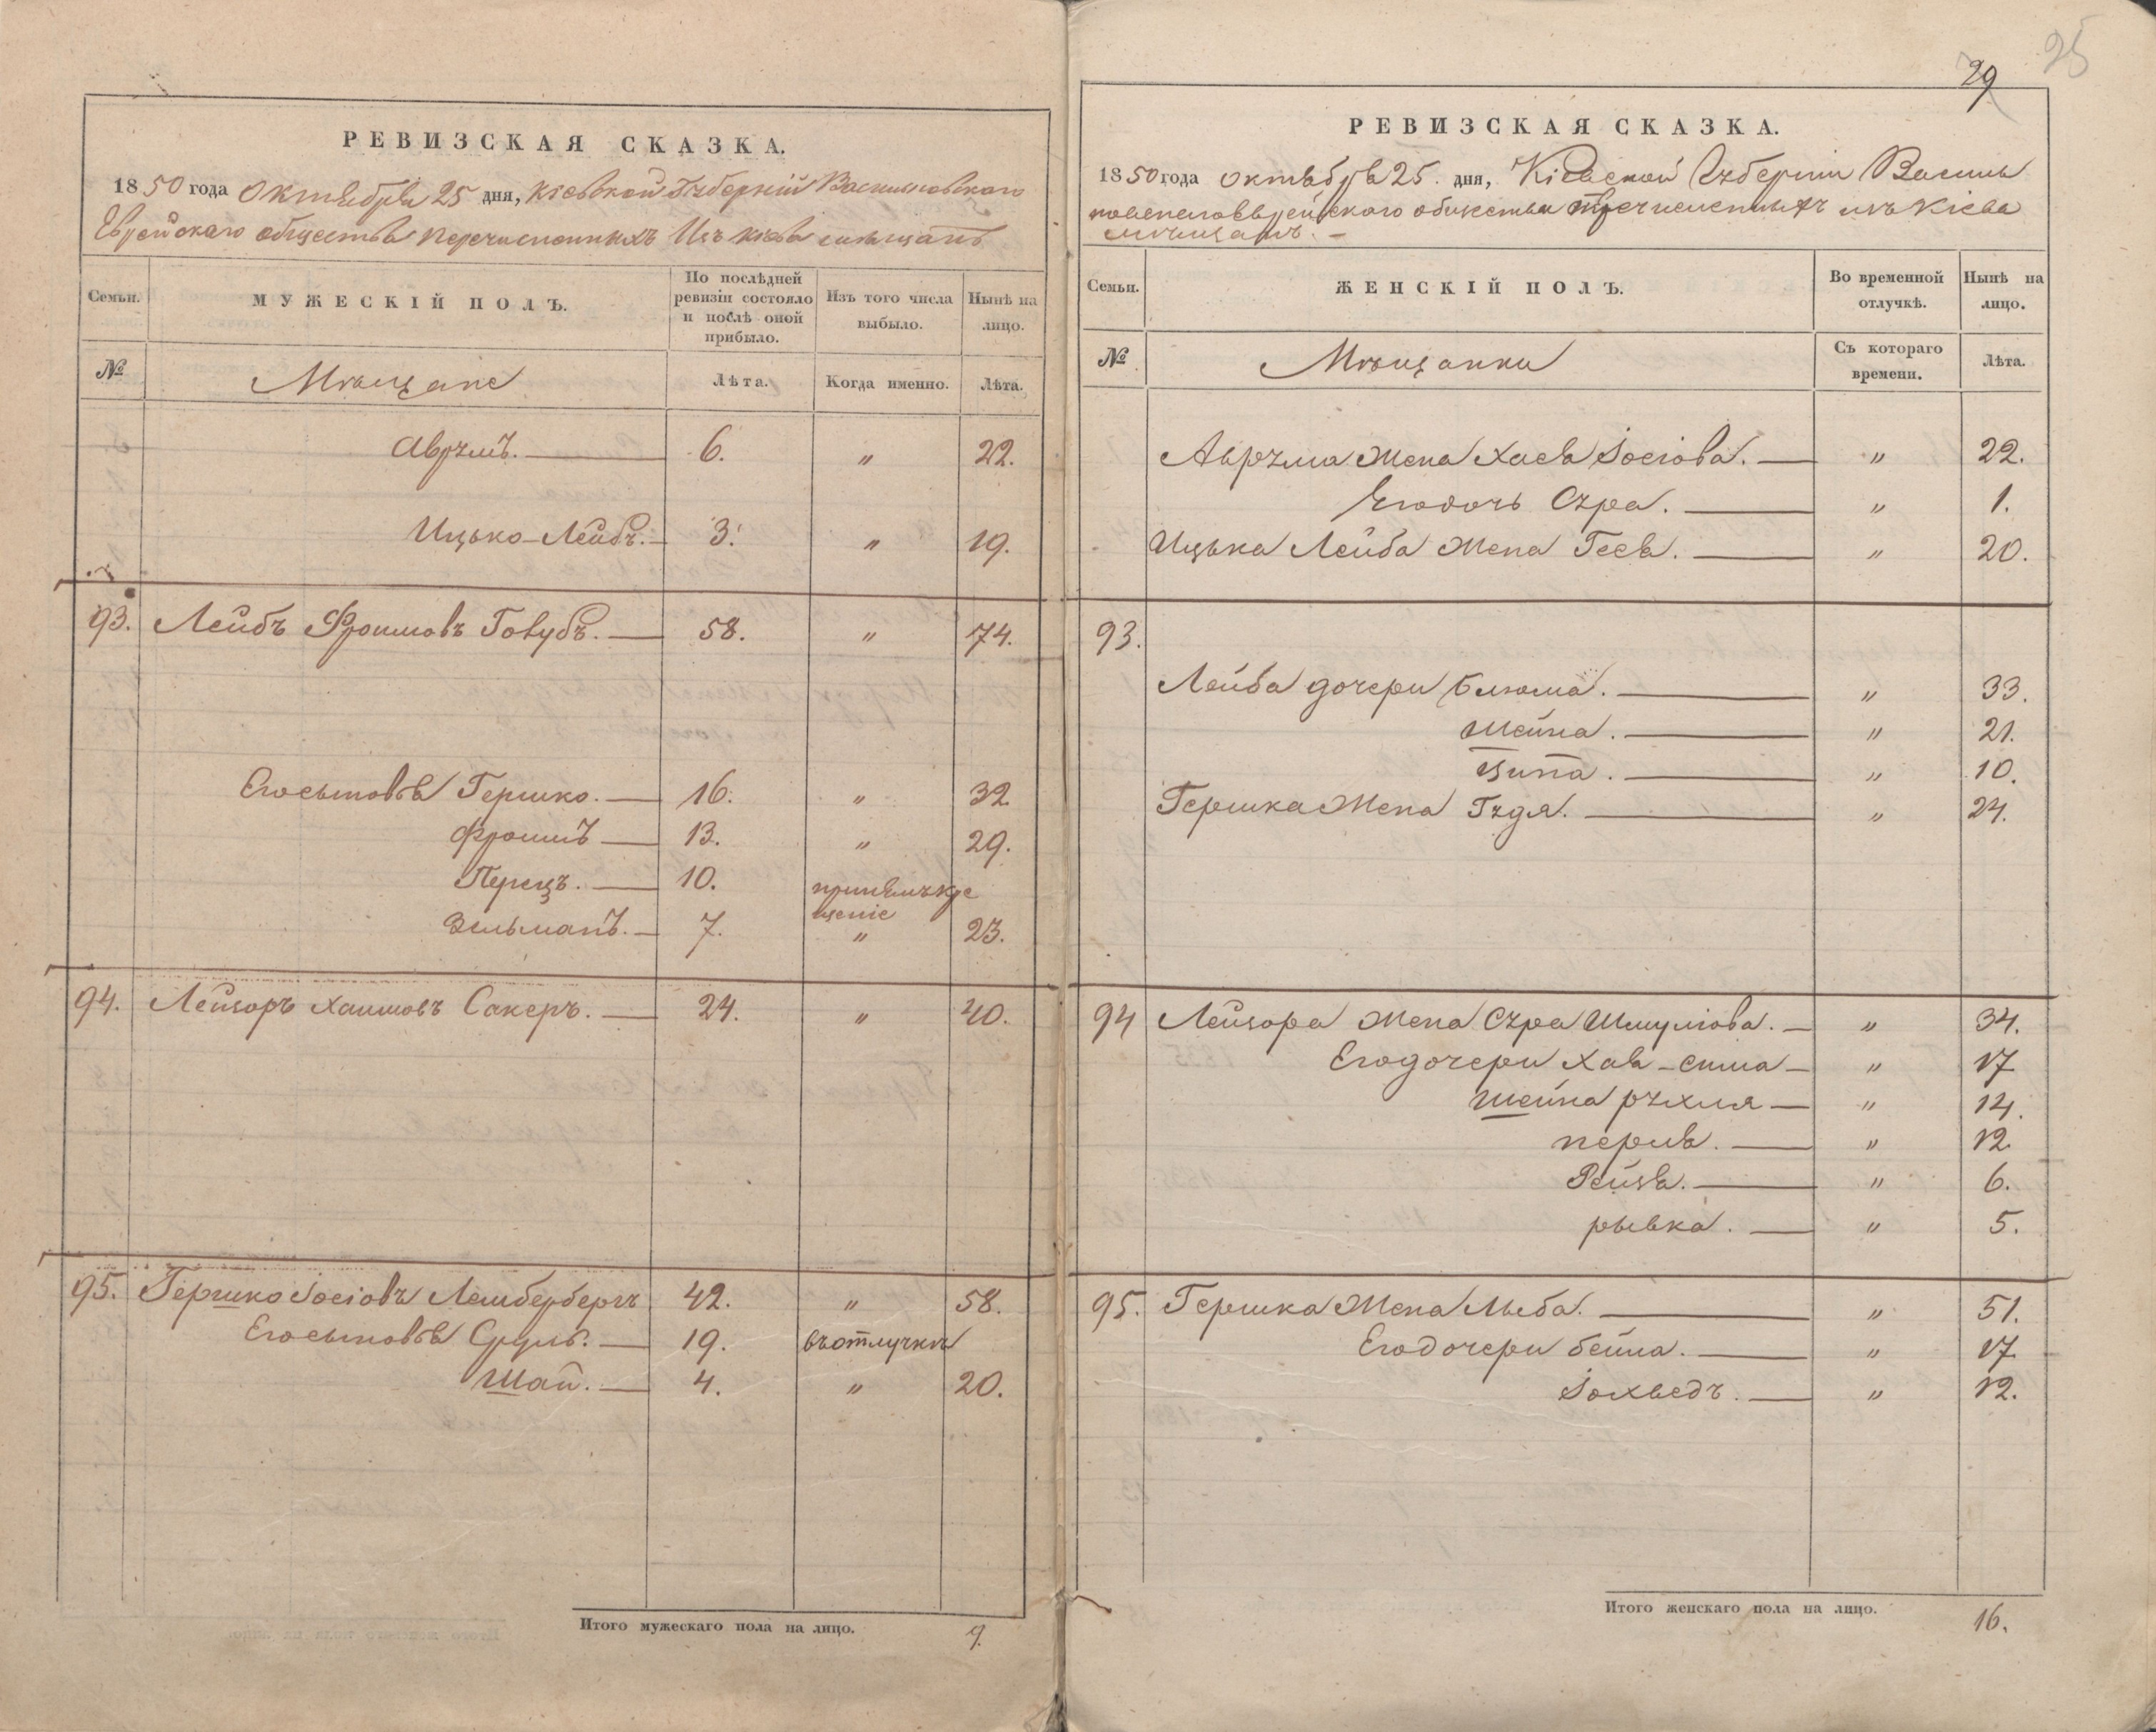 РЕВИЗСКАЯ СКАЗКА.
1850 года Октября 25 дня, Кіевской Губерніи Васильковскаго
Еврейскаго общества перечисленныхъ Изъ Кіева мѣщанъ
Семьи.
МУЖЕСКІЙ ПОЛЪ.
По послѣдней ревизіи состояло и послѣ оной прибыло.
Изъ того числа выбыло.
Нынѣ на лицо.
№
Мѣщане
Лѣта.
Когда именно.
Лѣта.
Аврумъ. 6. „ 22.
Ицько-Лейбъ. 3. „ 19.
93. Лейбъ Фроимовъ Голубъ. 58. „ 74.
Егосыновья Гершко. 16. „ 32
Фроимъ 13. „ 29.
Перецъ. 10. принялъ кре
щеніе
Зельманъ. 7. „ 23.
94. Лейзоръ Хаимовъ Сакеръ. 24. „ 40.
95. Гершко Іосіовъ Лембербергъ 42. „ 58.
Егосыновья Сруль. 19. въ отлучкѣ
Шая. 4. „ 20.
Итого мужескаго пола на лицо. 9.
29
25
РЕВИЗСКАЯ СКАЗКА.
1850 года октября 25. дня, Кіевской Губерніи Василь
ковскаго Еврейскаго общества перечисленныхъ изъ Кіева
мѣщанъ. –
Семьи.
ЖЕНСКІЙ ПОЛЪ.
Во временной отлучкѣ.
Нынѣ на лицо.
№
Мѣщанки
Съ котораго времени.
Лѣта.
Аврума жена Хаея Іосіова. „ 22.
Егодочь Сура. „ 1.
Ицька Лейба жена Геся. „ 20.
93.
Лейба дочери Блюма. „ 33.
Шейна. „ 21.
Ципа. „ 10.
Гершка жена Гудя. „ 24.
94 Лейзора жена Сура Шмуліова. „ 34.
Егодочери Хая-сима „ 17
Шейна рухля „ 14.
перля. „ 12.
Рейзя. „ 6.
рывка. „ 5.
95. Гершка жена Люба. „ 51.
Егодочери бейла. „ 17
Іохведъ. „ 12.
Итого женскаго пола на лицо. 16.